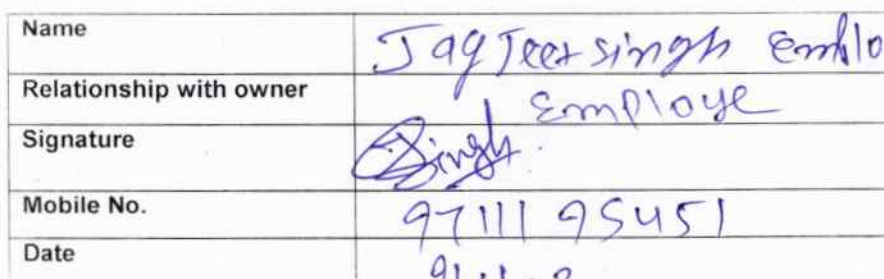 Name Jagjeet singh Emplo
Relationship with owner Employe
Signature Singh
Mobile No. 97111 95451
Date